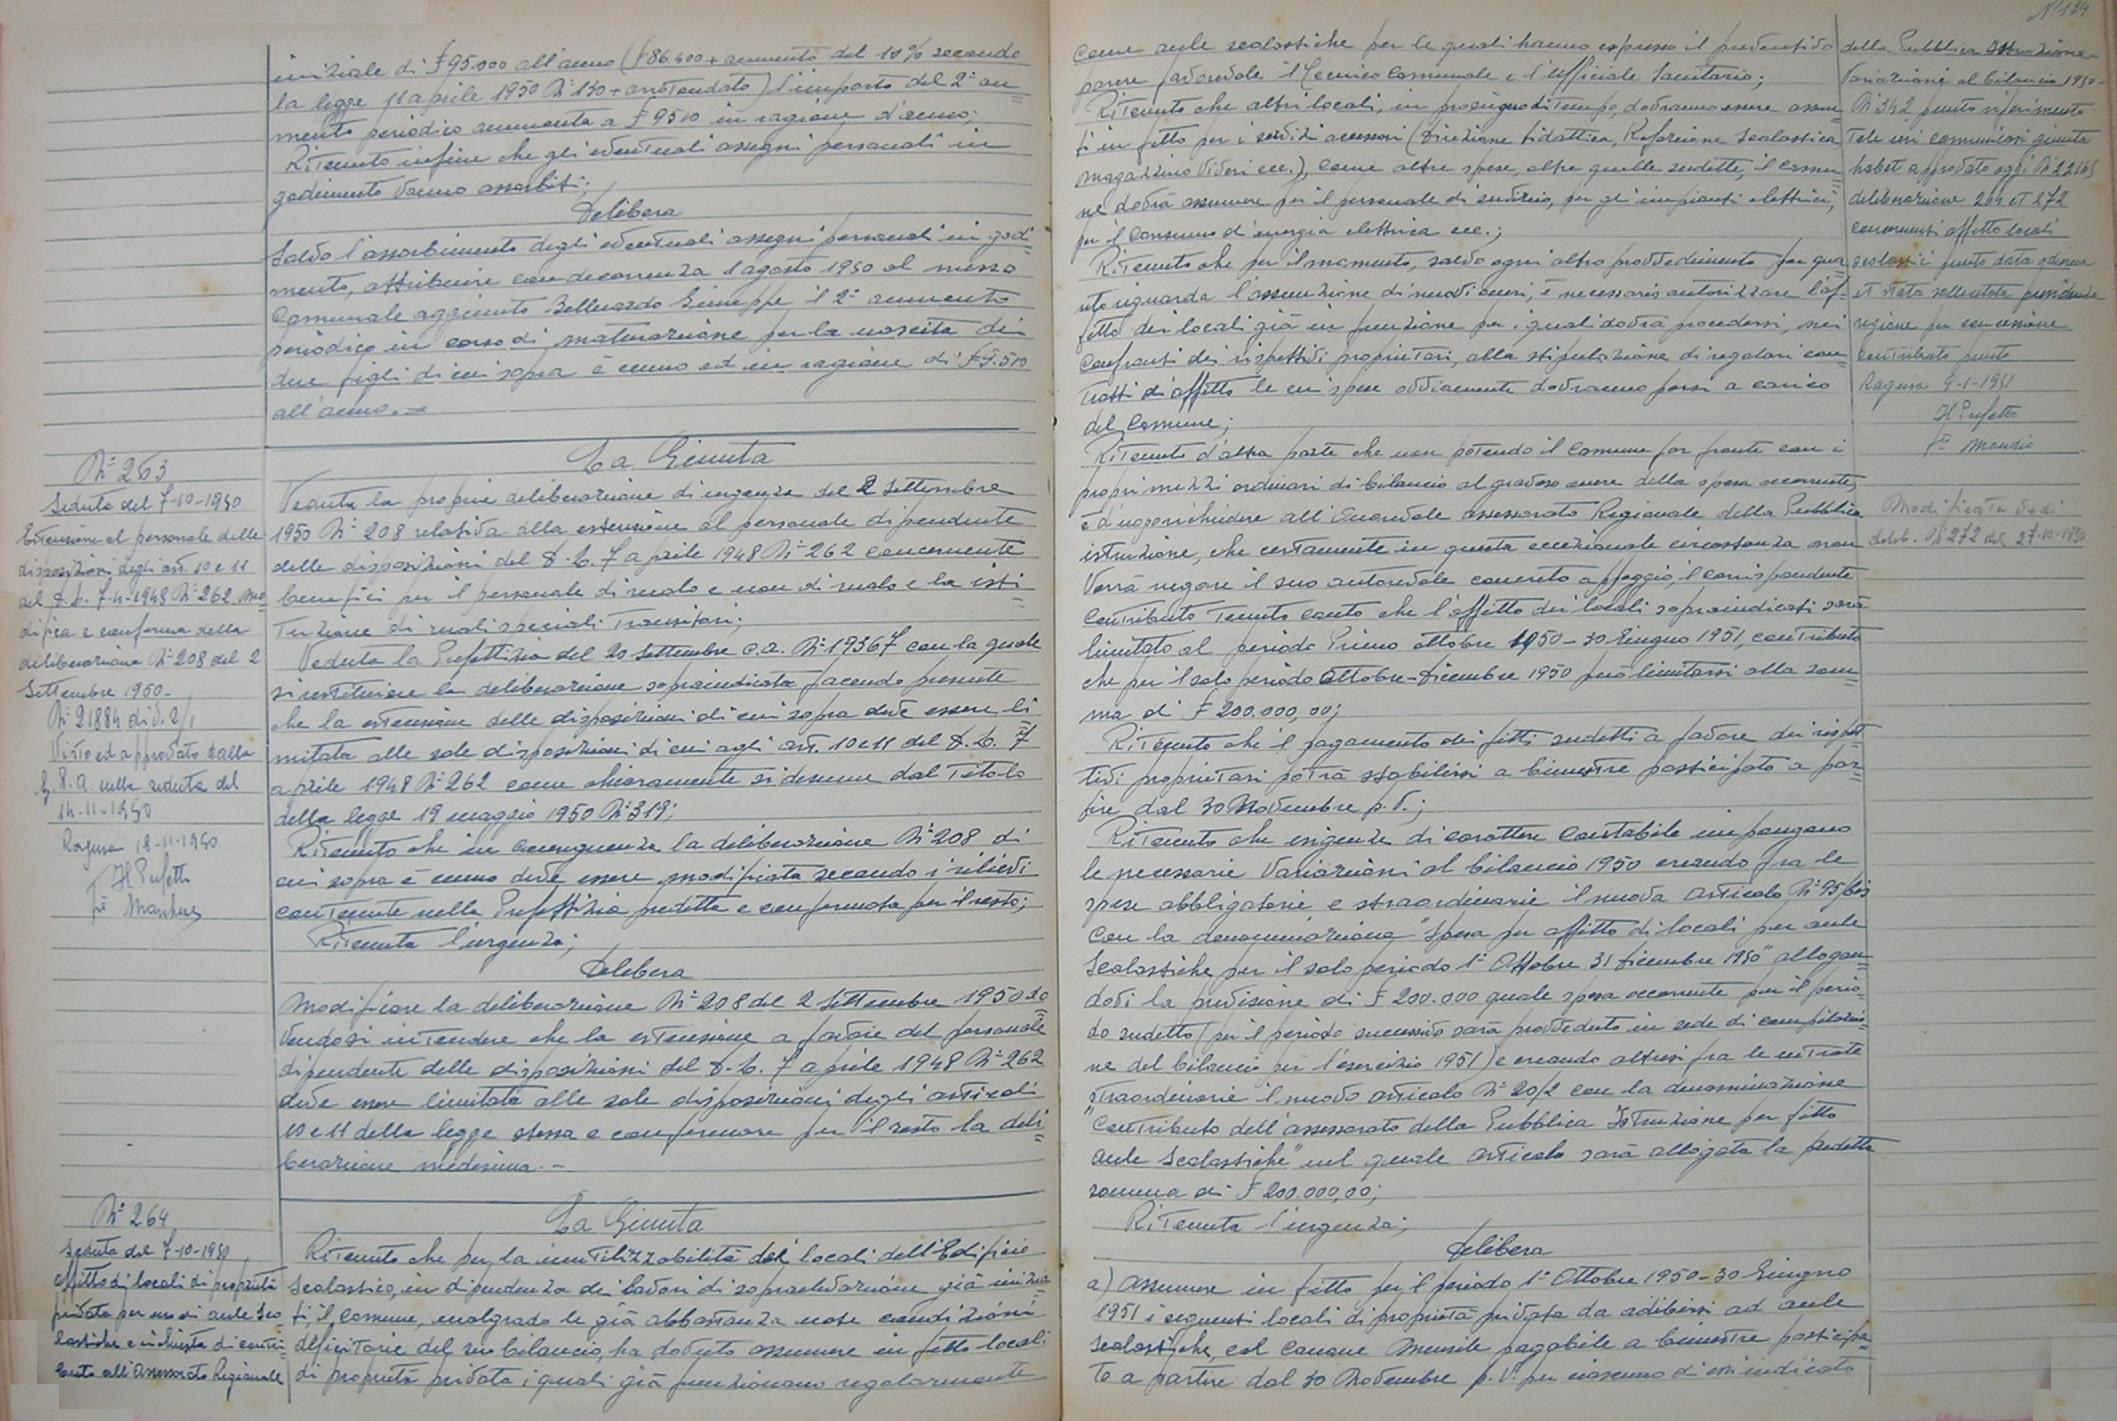 iniziale di £ 95.000 all'anno (£ 86.400 + aumento del 10% secondo
la legge 11 aprile 1950 N° 130 + arrotondato) l'importo del 2° au=
mento periodico ammonta a £ 9500 in ragione d'anno;
Ritenuto infine che gli eventuali assegni personali in
godimento vanno assorbiti;
Delibera
Salvo l'assorbimento degli eventuali assegni personali in godi=
mento, attribuire con decorrenza 1 agosto 1950 al messo
Comunale aggiunto Giuseppe il 2° aumento
periodico in corso di maturazione per la nascita dei
due figli di cui sopra è cenno ed in ragione di £ 9.500
all'anno.=
N° 263
Seduta del 7-10-1950
Estensione al personale delle
disposizioni degli art. 10 e 11
del D.L. 7-4-1948 N° 262. Mo=
difica e conferma della
deliberazione N° 208 del 2
Settembre 1950-
N° 21884 div. 2/1
Visto ed approvato dalla
G.P.A. nella seduta del
14-11-1950
Ragusa 18-11-1950
Il Prefetto
La Giunta
Veduta la propria deliberazione di urgenza del 2 Settembre
1950 N° 208 relativa alla estensione al personale dipendente
delle disposizioni del D.L. 7 aprile 1948 N° 262 concernente
benefici per il personale di ruolo e non di ruolo e la isti=
tuzione di ruoli speciali transitori;
Veduta la Prefettizia del 20 Settembre c.a. N° 19367 con la quale
si restituisce la deliberazione sopraindicata facendo presente
che la estensione delle disposizioni di cui sopra deve essere li=
mitata alle sole disposizioni di cui agli art. 10 e 11 del D.L. 7
aprile 1948 N° 262 come chiaramente si desume dal Titolo
della legge 19 maggio 1950 N° 319;
Ritenuto che in conseguenza la deliberazione N° 208 di
cui sopra è cenno deve essere modificata secondo i rilievi
contenute nella Prefettizia predetta e confermata per il resto;
Ritenuta l'urgenza;
Delibera
Modificare la deliberazione N° 208 del 2 Settembre 1950 do=
vendosi intendere che la estensione a favore del personale
dipendente delle disposizioni del D.L. 7 aprile 1948 N° 262
deve essere limitata alle sole disposizioni degli articoli
10 e 11 della legge stessa e confermare per il resto la deli=
berazione medesima.-
N° 264
Seduta del 7-10-1950
Affitto di locali di proprietà
privata per uso di aule sco
lastiche e richiesta di contri=
buto all'Assessorato Regionale
La Giunta
Ritenuto che per la inutilizzabilità dei locali dell'Edificio
Scolastico, in dipendenza dei lavori di sopraelevazione già inizia
ti il Comune, malgrado le già abbastanza note condizioni
deficitarie del suo bilancio, ha dovuto assumere in fitto locali
di proprietà privata i quali già funzionano regolarmente
N° 134
come aule scolastiche per le quali hanno espresso il preventivo
parere favorevole il Tecnico Comunale e l'Ufficiale Sanitario;
Ritenuto che altri locali, in prosieguo di tempo, dovranno essere assun=
ti in fitto per i servizi accessori (Direzione Didattica, Refezione Scolastica
magazzino viveri ecc.), come altre spese, oltre quelle sudette, il Comu=
ne dovrà assumere per il personale di servizio, per gl'impianti elettrici,
per il consumo di energia elettrica ecc.;
Ritenuto che per il momento, salvo ogni altro provvedimento per qua=
nto riguarda l'assunzione di nuovi oneri, è necessario autorizzare l'af=
fitto dei locali già in funzione per i quali dovrà procedersi, nei
confronti dei rispettivi proprietari, alla stipulazione di regolari con=
tratti di affitto le cui spese ovviamente dovranno porsi a carico
del Comune;
Ritenuto d'altra parte che non potendo il Comune far fronte con i
propri mezzi ordinari di bilancio al gravoso onere della spesa occorrente,
è d'uopo richiedere all'Onorevole Assessorato Regionale della Pubblica
istruzione, che certamente in questa eccezionale circostanza non
vorrà negare il suo autorevole concreto appoggio, il corrispondente
contributo tenuto conto che l'affitto dei locali sopraindicati sarà
limitato al periodo Primo ottobre 1950 - 30 Giugno 1951, contributo
che per il solo periodo Ottobre-Dicembre 1950 può limitarsi alla som=
ma di £ 200.000,00;
Ritenuto che il pagamento dei fitti sudetti a favore dei rispet=
tivi proprietari potrà stabilirsi a bimestre posticipato a par=
tire dal 30 Novembre p.v.;
Ritenuto che esigenze di carattere contabile impongano
le necessarie variazioni al bilancio 1950 creando fra le
spese obbligatorie e straordinarie il nuovo articolo N° 95/bis
con la denominazione "Spesa per affitto di locali per aule
Scolastiche per il solo periodo 1° Ottobre 31 Dicembre 1950" allogan=
dovi la previsione di £ 200.000 quale spesa occorrente per il perio=
do sudetto (per il periodo successivo sarà provveduto in sede di compilazio=
ne del bilancio per l'esercizio 1951) e creando altresì fra le entrate
straordinarie il nuovo articolo N° 20/2 con la denominazione
"Contributo dell'assessorato della Pubblica Istruzione per fitto
aule Scolastiche" nel quale articolo sarà allogata la predetta
somma di £ 200.000,00;
Ritenuta l'urgenza;
Delibera
a) Assumere in fitto per il periodo 1° Ottobre 1950 - 30 Giugno
1951 i seguenti locali di proprietà privata da adibirsi ad aule
Scolastiche, col canone mensile pagabile a bimestre posticipa=
to a partire dal 30 Novembre p.v. per ciascuno di essi indicato
della Pubblica Istruzione-
Variazioni al bilancio 1950-
N° 342 punto riferimento
Tele cui comunicasi giunta
habet approvato oggi N°
deliberazione 264 et 272
concernenti affitto locali
scolastici punto data odierna
et stata sollecitata presidenza
regione per concessione
contributo punto
Ragusa 9-1-1951
Il Prefetto
Modificata vedi
delib. N° 272 del 27-10-1950